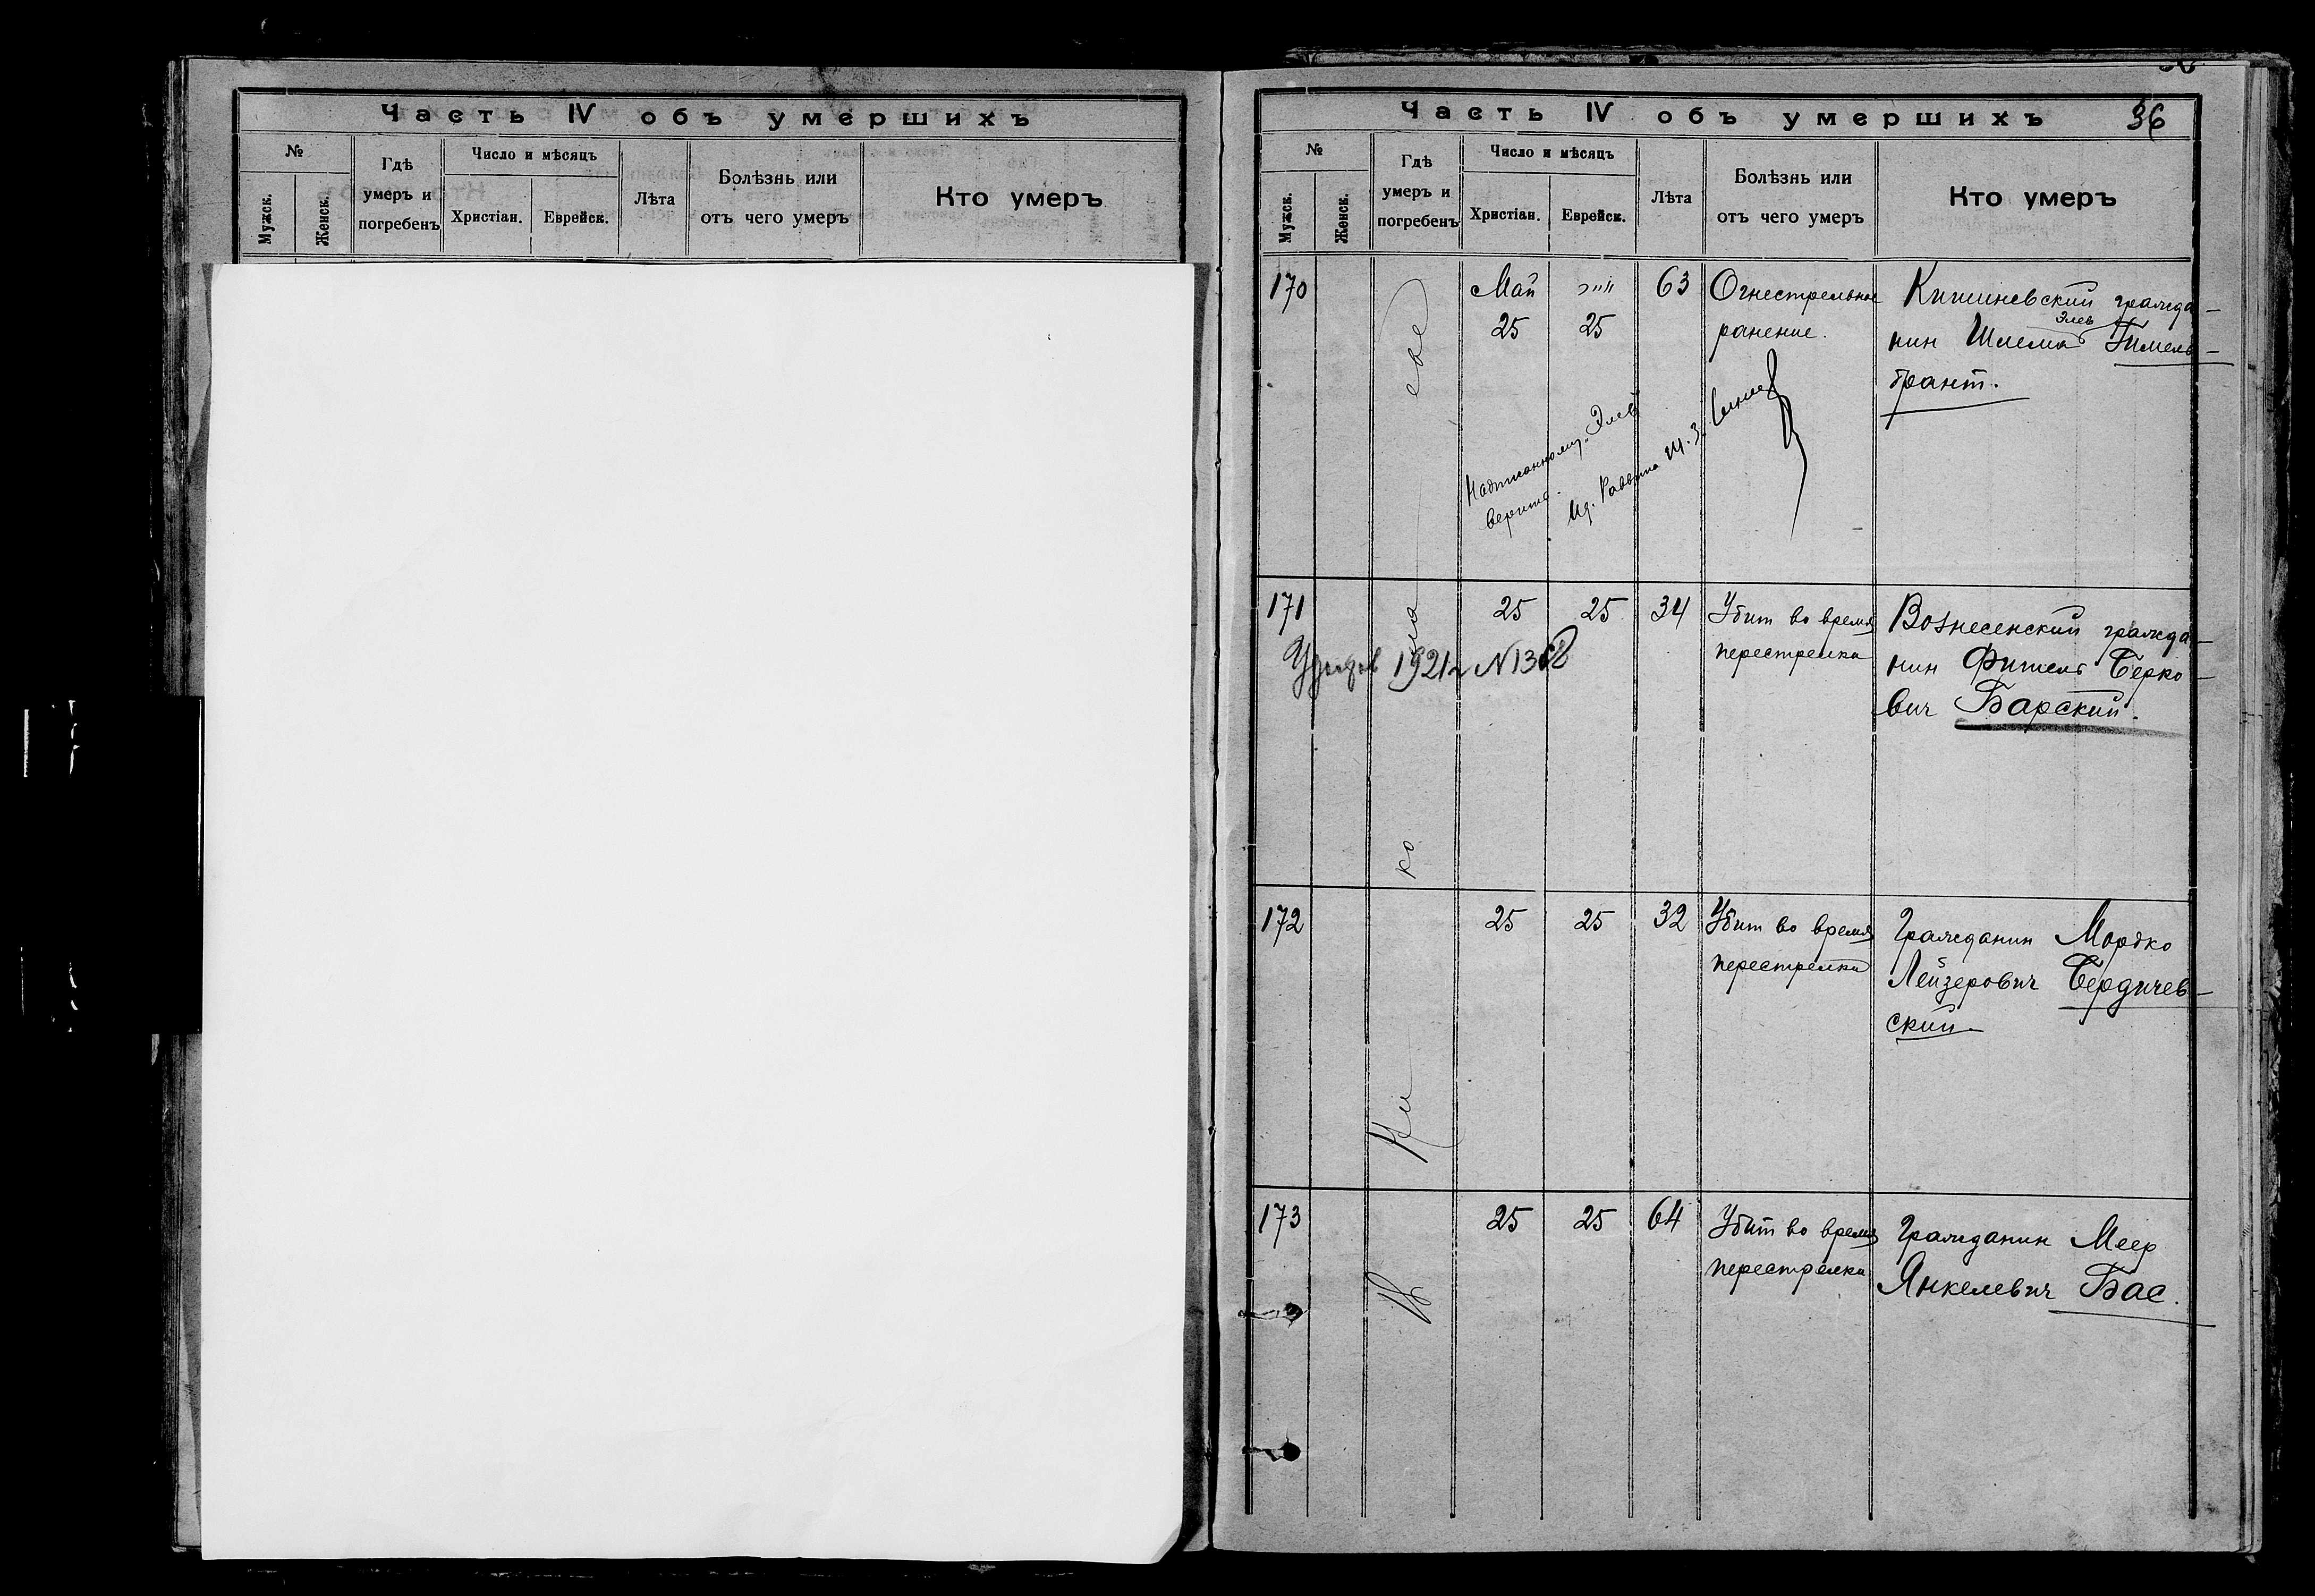 Часть IV объ умершихъ
№
Мужск.
Женск.
Гдѣ
умеръ и
погребенъ
Число и мѣсяцъ
Христіан.
Еврейск.
Лѣта
Болѣзнь или
отъ чего умеръ
Кто умеръ
Часть IV объ умершихъ
36
№
Мужск.
Женск.
Гдѣ
умеръ и
погребенъ
Число и мѣсяцъ
Христіан.
Еврейск.
Лѣта
Болѣзнь или
отъ чего умеръ
Кто умеръ
170
Май
25
25
63
Огнестрельное
ранение.
Кишиневский гражда-
Элев
нин Шлема Гимель-
брант.
Надписанному "Элев"
верить.
Ид. Раввина М. З.
171
25
25
34
Убит во время
перестрелки
Вознесенский гражда-
нин Фишель Берко-
вич Барский.
1921 г N
172
25
25
32
Убит во время
перестрелки
Гражданин Мордко
Лейзерович Бердичев-
ский
173
25
25
64
Убит во время
перестрелки
Гражданин Меер
Янкелевич Бас.
В Ни ко ла еве